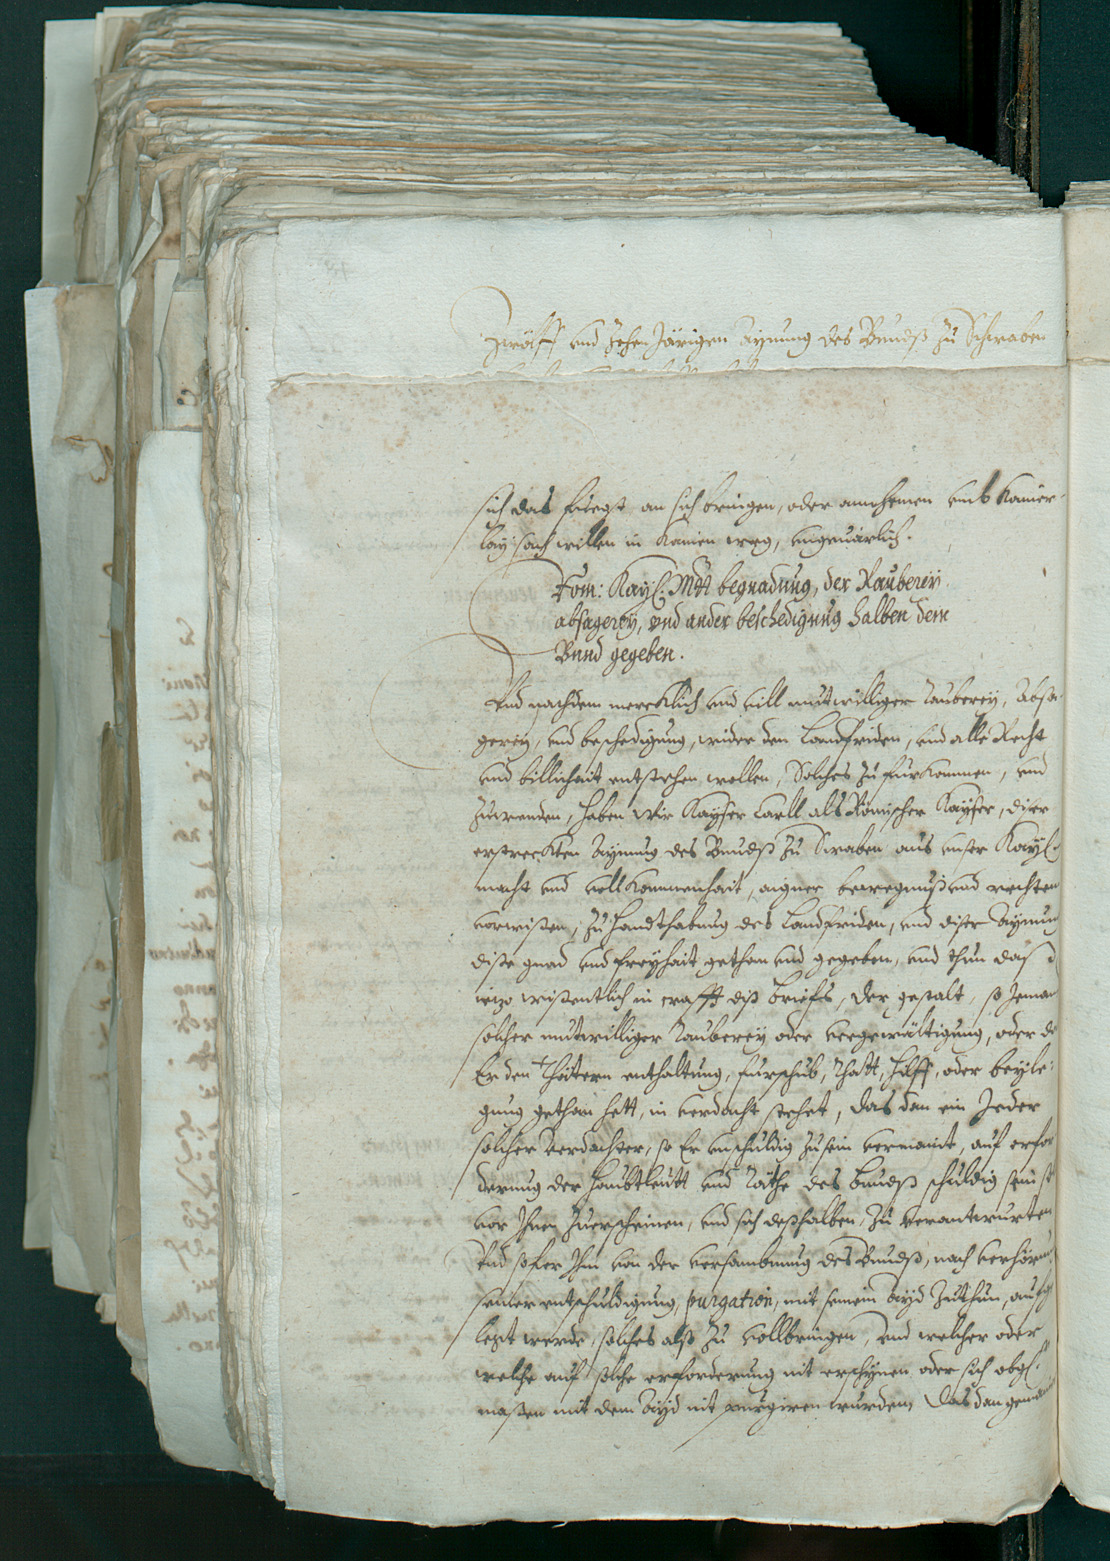 Zwölff und Zehen Järigen Aynung des Bundß zu Schwaben
sich das fuegt, an sich bringen, oder annehmen umb kainer-
lay sach willen in kainen weg, ungevärlich.
Rom: Kayß: Mtt begnadung, der Rauberey
absagerey, und ander beschedigung halben dem
Bund gegeben.
Und nachdem mercklich und vill mutwilliger Rauberey, Absa-
gerey, und beschedigung, wider den Landfriden, und alle Recht
und billichait entstehen wollen, Solches zu furkommen, und
zuwenden, haben wir Kayser Carll als Römischer Kayser, diser
erstreckten Aynung des Bundß zu Swaben aus unser Kayß:
macht und vollkommenhait, aigner bewegnuß und rechten
vorwissen, zu Handthabung des Landfriden, und diser Aynun
dise gnad und freyhait gethan und gegeben, und thun das
iezo wissentlich in crafft diß briefs, der gestalt, so Jeman
solcher mutwilliger Rauberey oder vergewältigung, oder de
Er den Thätern enthaltung, furschub, Rhatt, Hilff, oder beyle-
gung gethan hett, in verdacht stehet, das dan ein Jeder
solcher verdachter, so Er unschuldig zusein vermaint, auf erfor
derung der Haubtleutt und Räthe des bundß schuldig sein so
vor Ihnen zuerscheinen, und sich deßhalben zu verantwurten
Und sofer Ihm von der versamblung des Bundß, nach verhörung
seiner entschuldigung, purgation, mit seinem Ayd zuthun, aufg
legt werde solches alß zu vollbringen, und welcher oder
welche auf solche erforderung nit erschynen oder sich obgl:
massen mit dem Ayd nit purgiren wurden, Das dan gemain